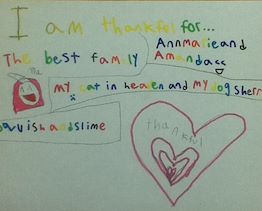 I am thankful for...
The best family
Annmarie and
Amanda
me
my cat in heaven and my dog sherr
and slime
thankful